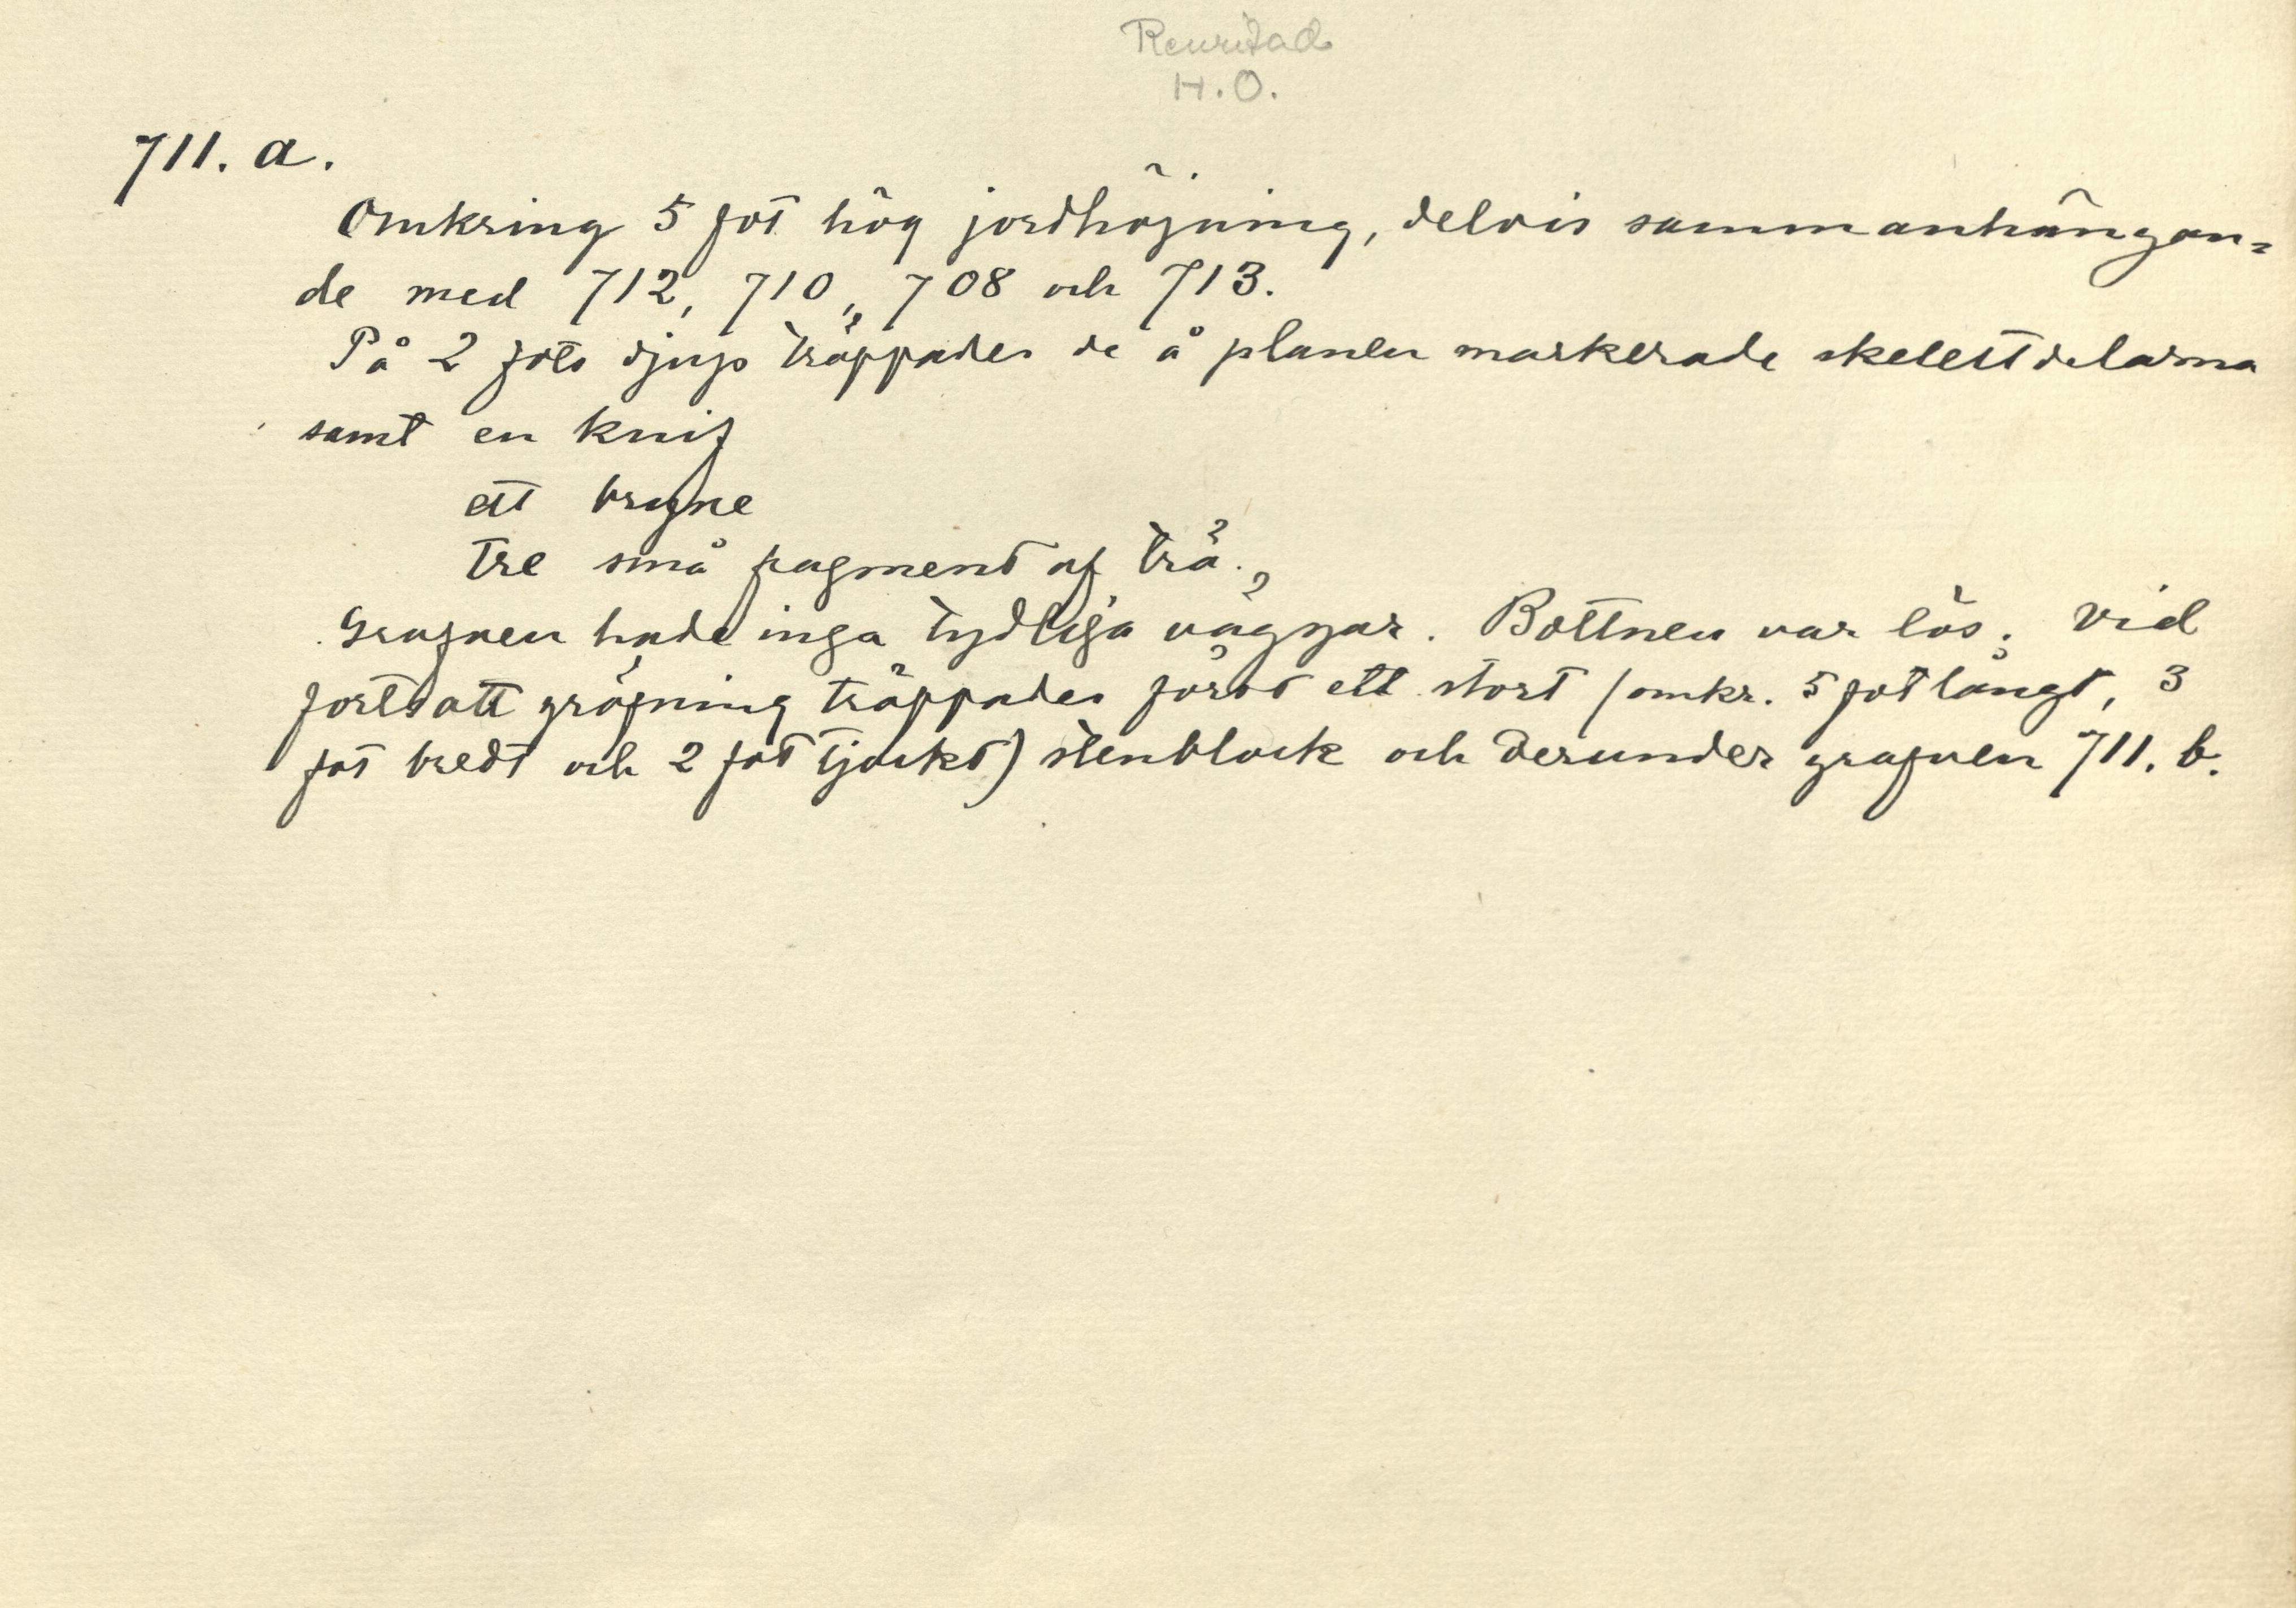 Renritad
H.O.
711. a.
Omkring 5 fot hög jordhöjning, delvis sammanhängan=
de med 712, 710, 708 och 713.
På 2 fots djup träffades de å planen markerade skelettdelarna
samt en knif
ett bryne
tre små fragment af trä.
Grafven hade inga tydliga väggar. Bottnen var lös. Vid
fortsatt gräfning träffades först ett stort (omkr. 5 fot långt, 3
fot bredt och 2 fot tjockt) stenblock och derunder grafven 711. b.